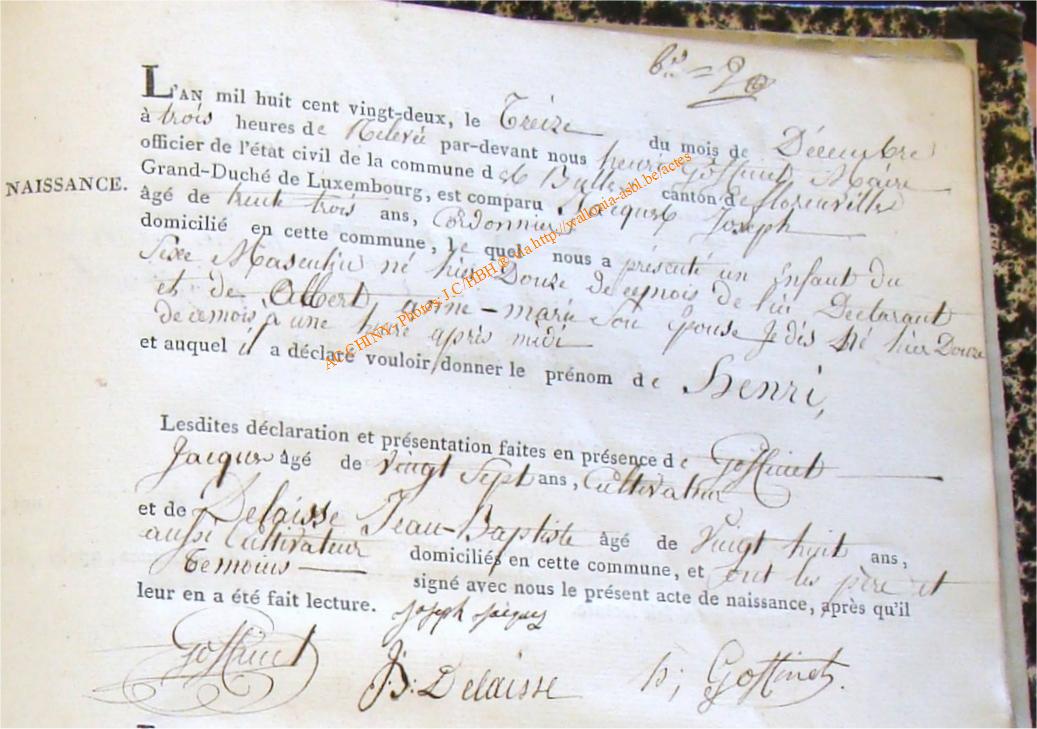 L'AN mil huit cent vingt-deux, le Treize du mois de Décembre
à trois heures de Relevé par-devant nous henri Goffinet Maire
officier de l'état civil de la commune d canton de florenville
NAISSANCE.
Grand-Duché de Luxembourg, est comparu Jacques Joseph
âgé de trente trois ans, Cordonnier
domicilié en cette commune, le quel nous a présenté un Enfant du
Sexe Masculin né hier Douze de ce mois de lui Déclarant
et de Albert, anne-marie Son Epouse Je dis né hier Douze
de ce mois à une heure après midi
et auquel il a déclaré vouloir donner le prénom de Henri,
Lesdites déclaration et présentation faites en présence de Goffinet
Jacques âgé de vingt Sept ans, Cultivateur
et de Delaisse Jean-Baptiste âgé de Vingt huit ans,
aussi Cultivateur domiciliés en cette commune, et ont les père et
Temoins signé avec nous le présent acte de naissance, après qu'il
leur en a été fait lecture. Joseph Jacques
Goffinet J.B: Delaisse h; Goffinet.
via http://wallonia-asbl.be/actes